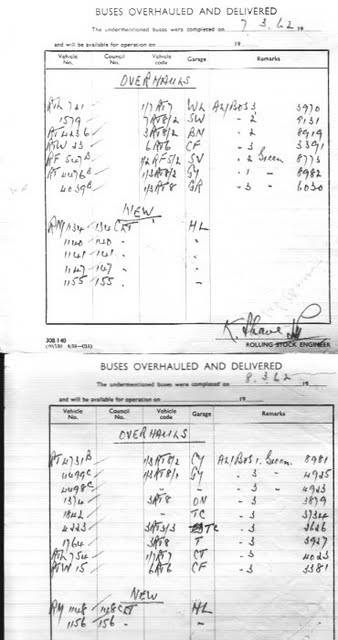 BUSES OVERHAULED AND DELIVERED
The undermentioned buses were completed on 7.3.62 19
and will be available for operation on 19
Vehicle No. Council No. Vehicle code Garage Remarks
OVERHAULS
RTL 721 1/7RT7 WL A21/BOS 3 3970
1579 7RT8/2 SW - 2 9131
RT 4236 3RT8/2 BN - 2 8919
RTW 23 6RT6 CF - 3 3391
RF 547 1/2RF5/2 SV - 2 Green 8773
RT 4476 1/3RT8/2 GY - 1 - 8982
4039 1/3RT8 GR - 3 - 6030
NEW
RM 1134 134 CLT HL
1140 140 - -
1141 141 - -
1147 147 - -
1155 155 - -
308.140
ROLLING STOCK ENGINEER
BUSES OVERHAULED AND DELIVERED
The undermentioned buses were completed on 8.3.62 19
and will be available for operation on 19
Vehicle No. Council No. Vehicle code Garage Remarks
OVERHAULS
RT 4731 1/3RT8/2 CY A21/BOS 1. Green 8981
4499 1/3RT8/1 GY - 3 - 4925
4498 - - - 3 - 4923
1374 3RT8 ON - 3 3879
1842 - TC - 3 3734
4223 3RT3/3 TC - 3 3626
1764 3RT8 T - 3 3927
RTL 754 1/7RT7 CT - 3 4023
RTW 15 6RT6 CF - 3 3381
NEW
RM 1148 148 CLT HL
1156 156 - -